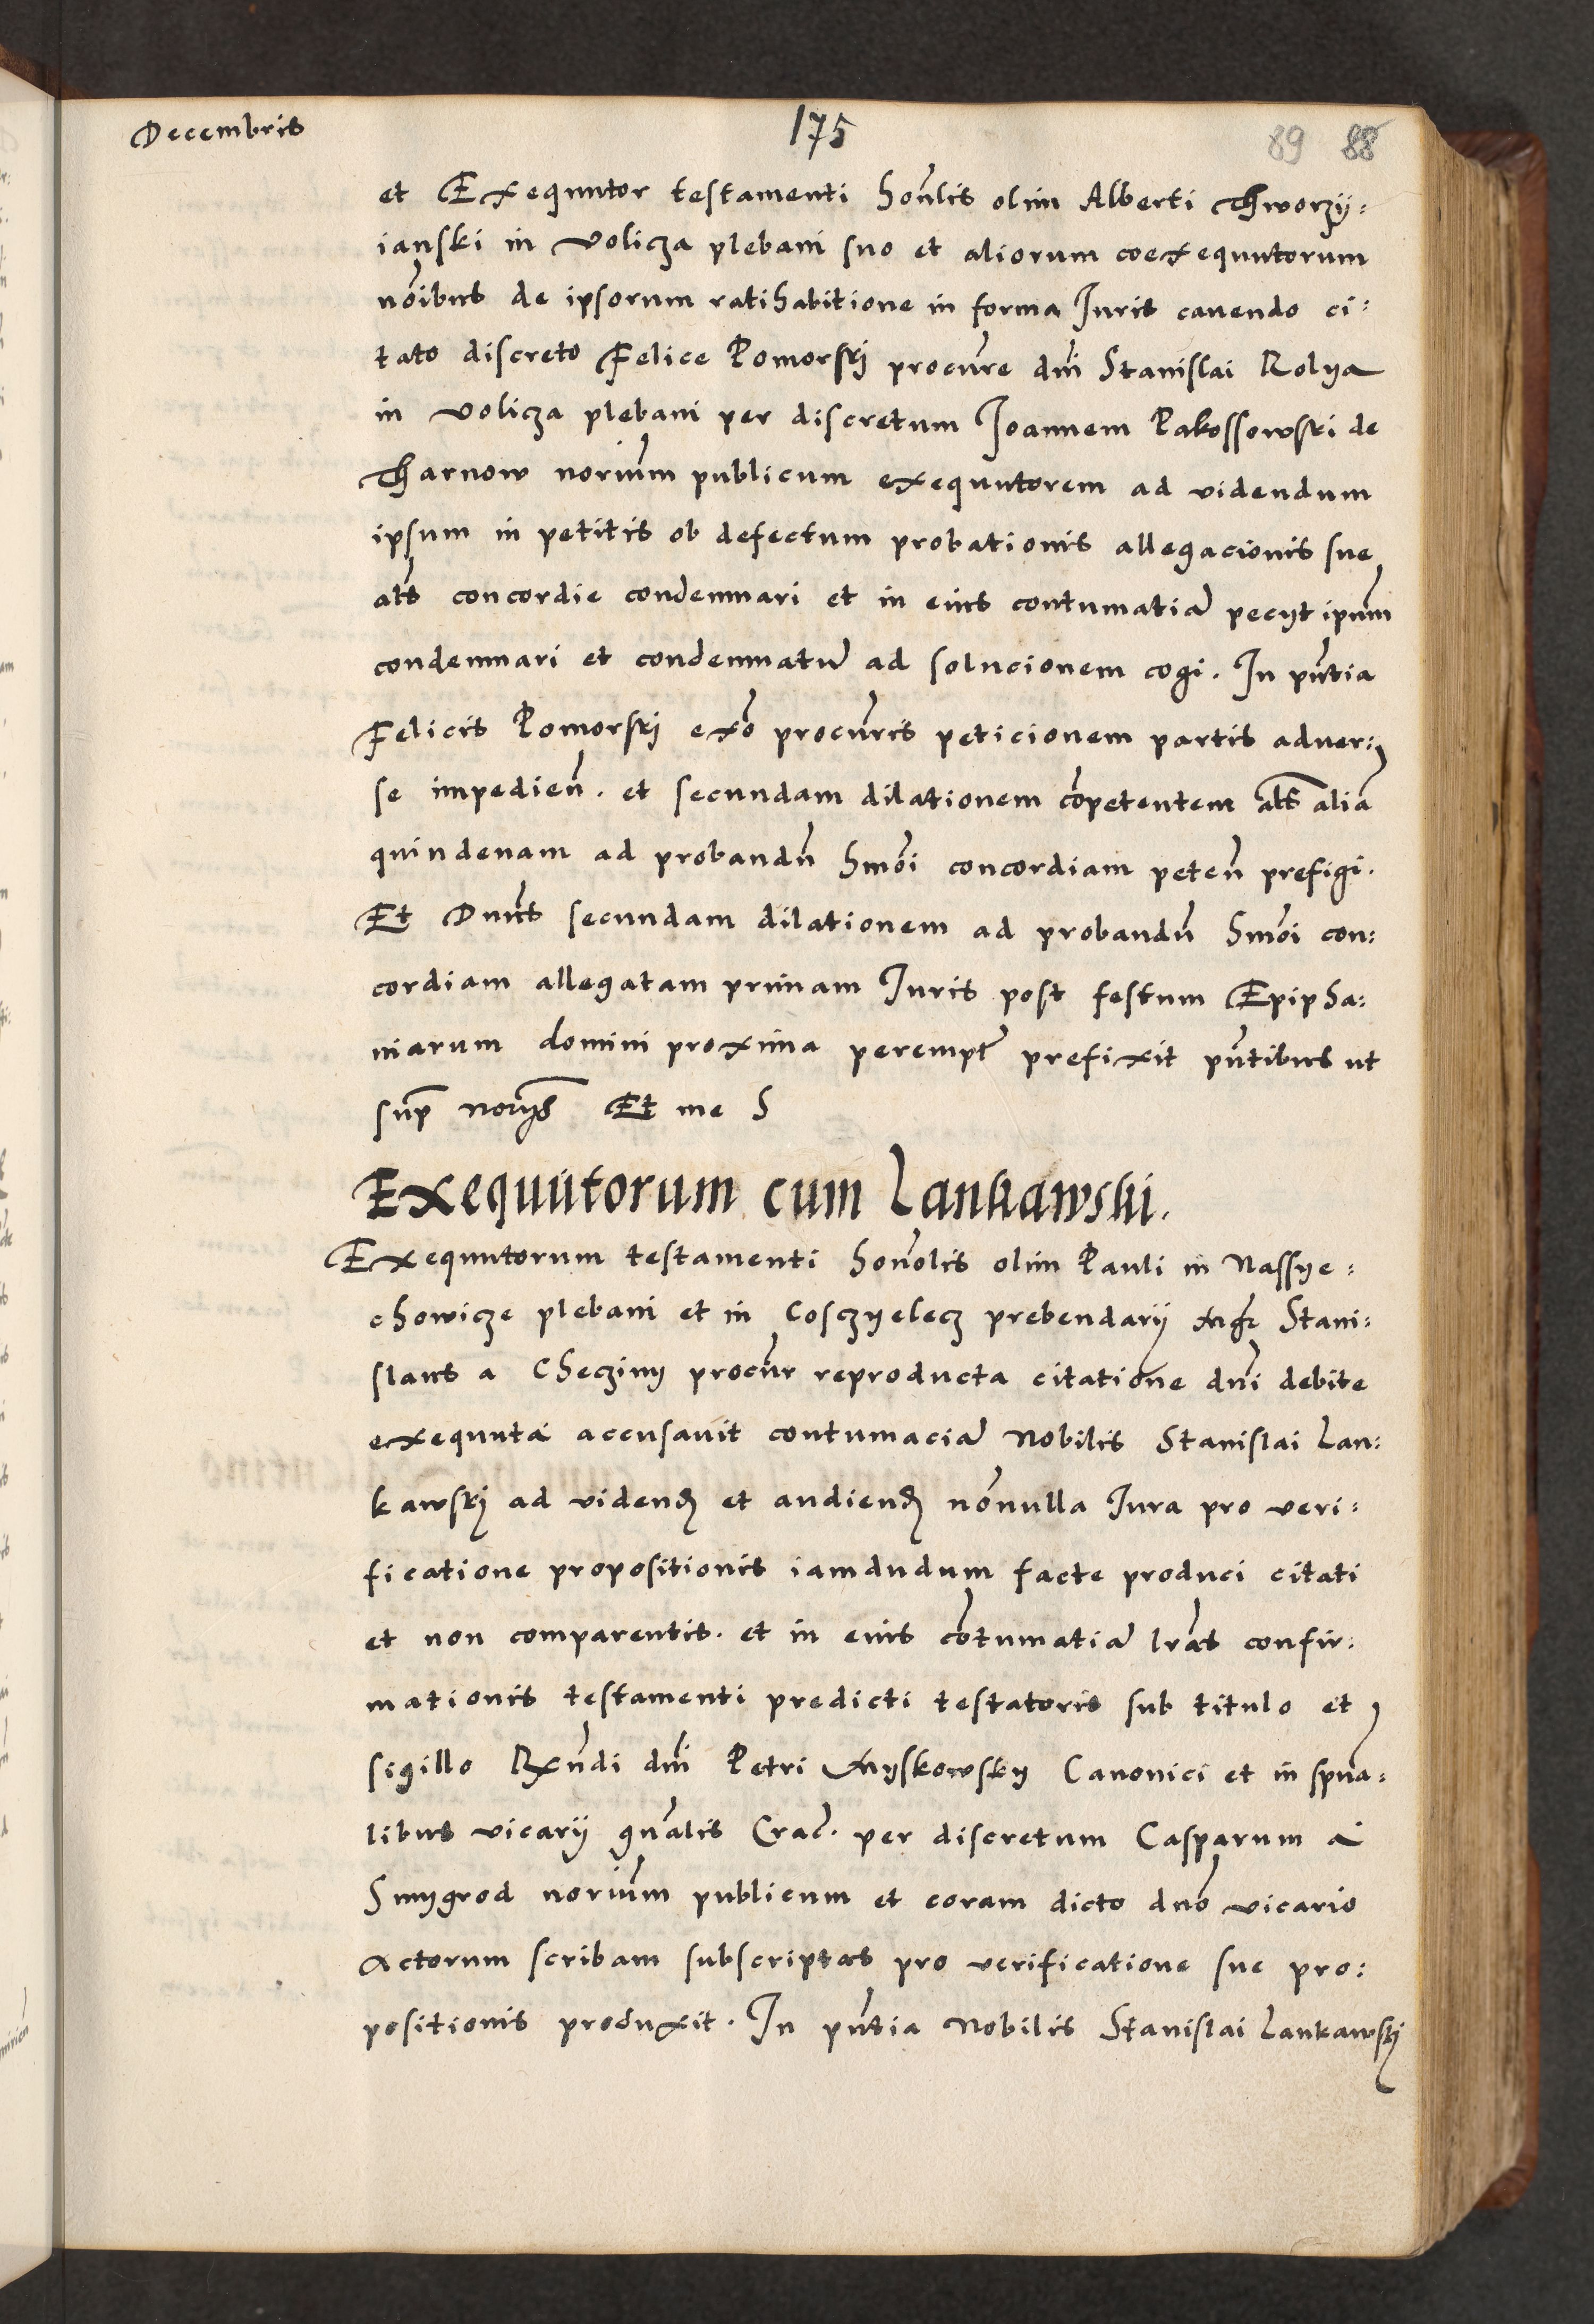 Decembris
175
89 88
et Exequutor testamenti honlis olim Alberti Thworzÿ:
ianski in Volicza plebani suo et aliorum coexequutorum
noibus de ipsorum ratihabitione in forma Iuris cavendo ci:
tato discreto Felice Pomorski procure dni Stanislai Rolya
in Volicza plebani per discretum Joannem Pakossowski de
Tharnow norium publicum exequutorem ad videndum
ipsum in petitis ob defectum probationis allegacionis sue
als concordie condemnari et in eius contumatia petyt ipum
condemnari et condemnatu ad solucionem cogi. In pntia
Felicis Pomorski exo procuris peticionem partis adver:
se impedien. et secundam dilationem competentem als alia
quindenam ad probandu hmoi concordiam peten prefigi.
Et Duns secundam dilationem ad probandu hmoi con:
cordiam allegatam primam Iuris post festum Epipha:
niarum domini proxima perempt prefixit pntibus ut
sup noryis Et me S
Exequutorum cum Lankawski.
Exequutorum testamenti honolis olim Pauli in Nassye:
chowicze plebani et in Cosczyelecz prebendarij Mgr Stani:
slaus a Checziny procur reproducta citatione dni debite
exequuta accusavit contumacia Nobilis Stanislai Lan:
kawski ad vidend et audiend nonnulla Iura pro veri:
ficatione propositionis iamdudum facte produci citati
et non comparentis. et in eius contumatia lras confir:
mationis testamenti predicti testatoris sub titulo et
sigillo Rxndi dni Petri Myskowsky Canonici et in spua:
libus vicarij gnalis Crac. per discretum Casparum a
Smygrod norium publicum et coram dicto dno vicario
Actorum scribam subscriptas pro verificatione sue pro:
positionis produxit. In pntia Nobilis Stanislai Lankawski